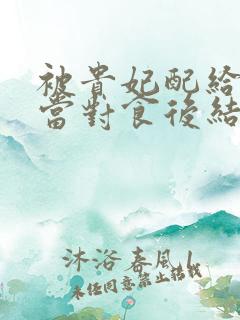 被貴妃配給
當對食後結
沐浴春風1
未经同意禁止转载